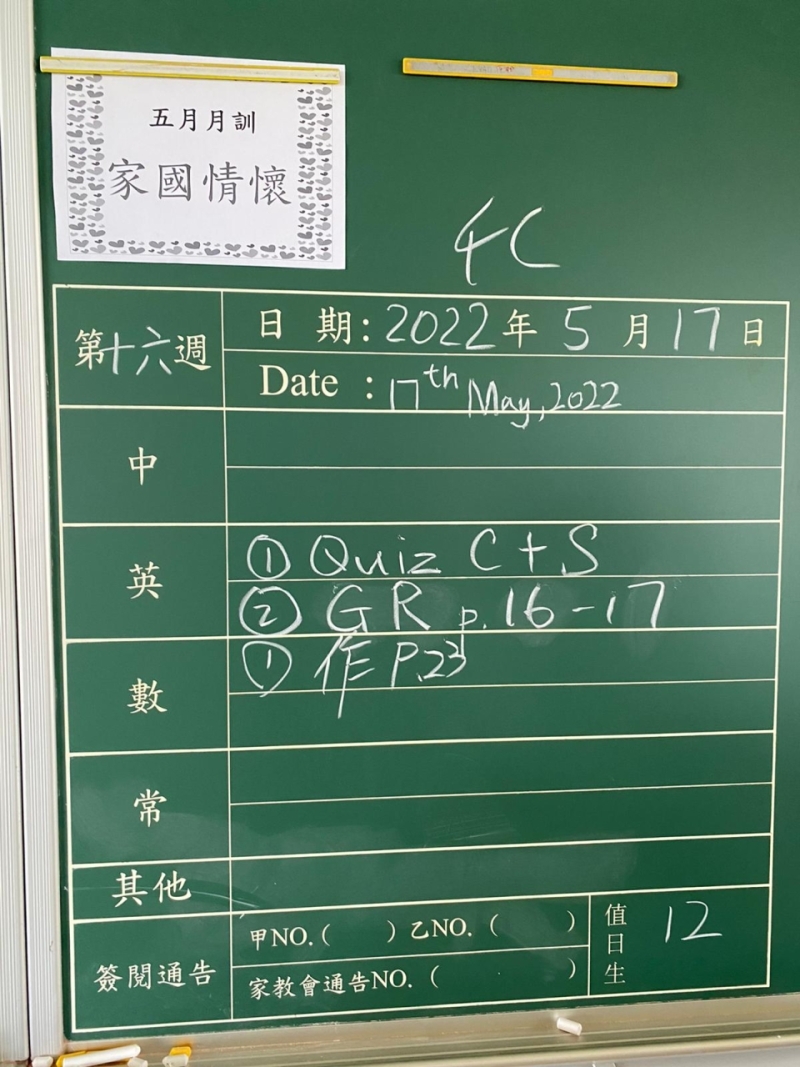 五月月訓
家國情懷
4C
第十六週
日 期: 2022年 5 月 17 日
Date : 17th May, 2022
中
英
① Quiz C + S
② GR p. 16-17
數
① 作 P.23
常
其他
簽閱通告
甲NO. ( ) 乙NO. ( )
家教會通告NO. ( )
值日生
12